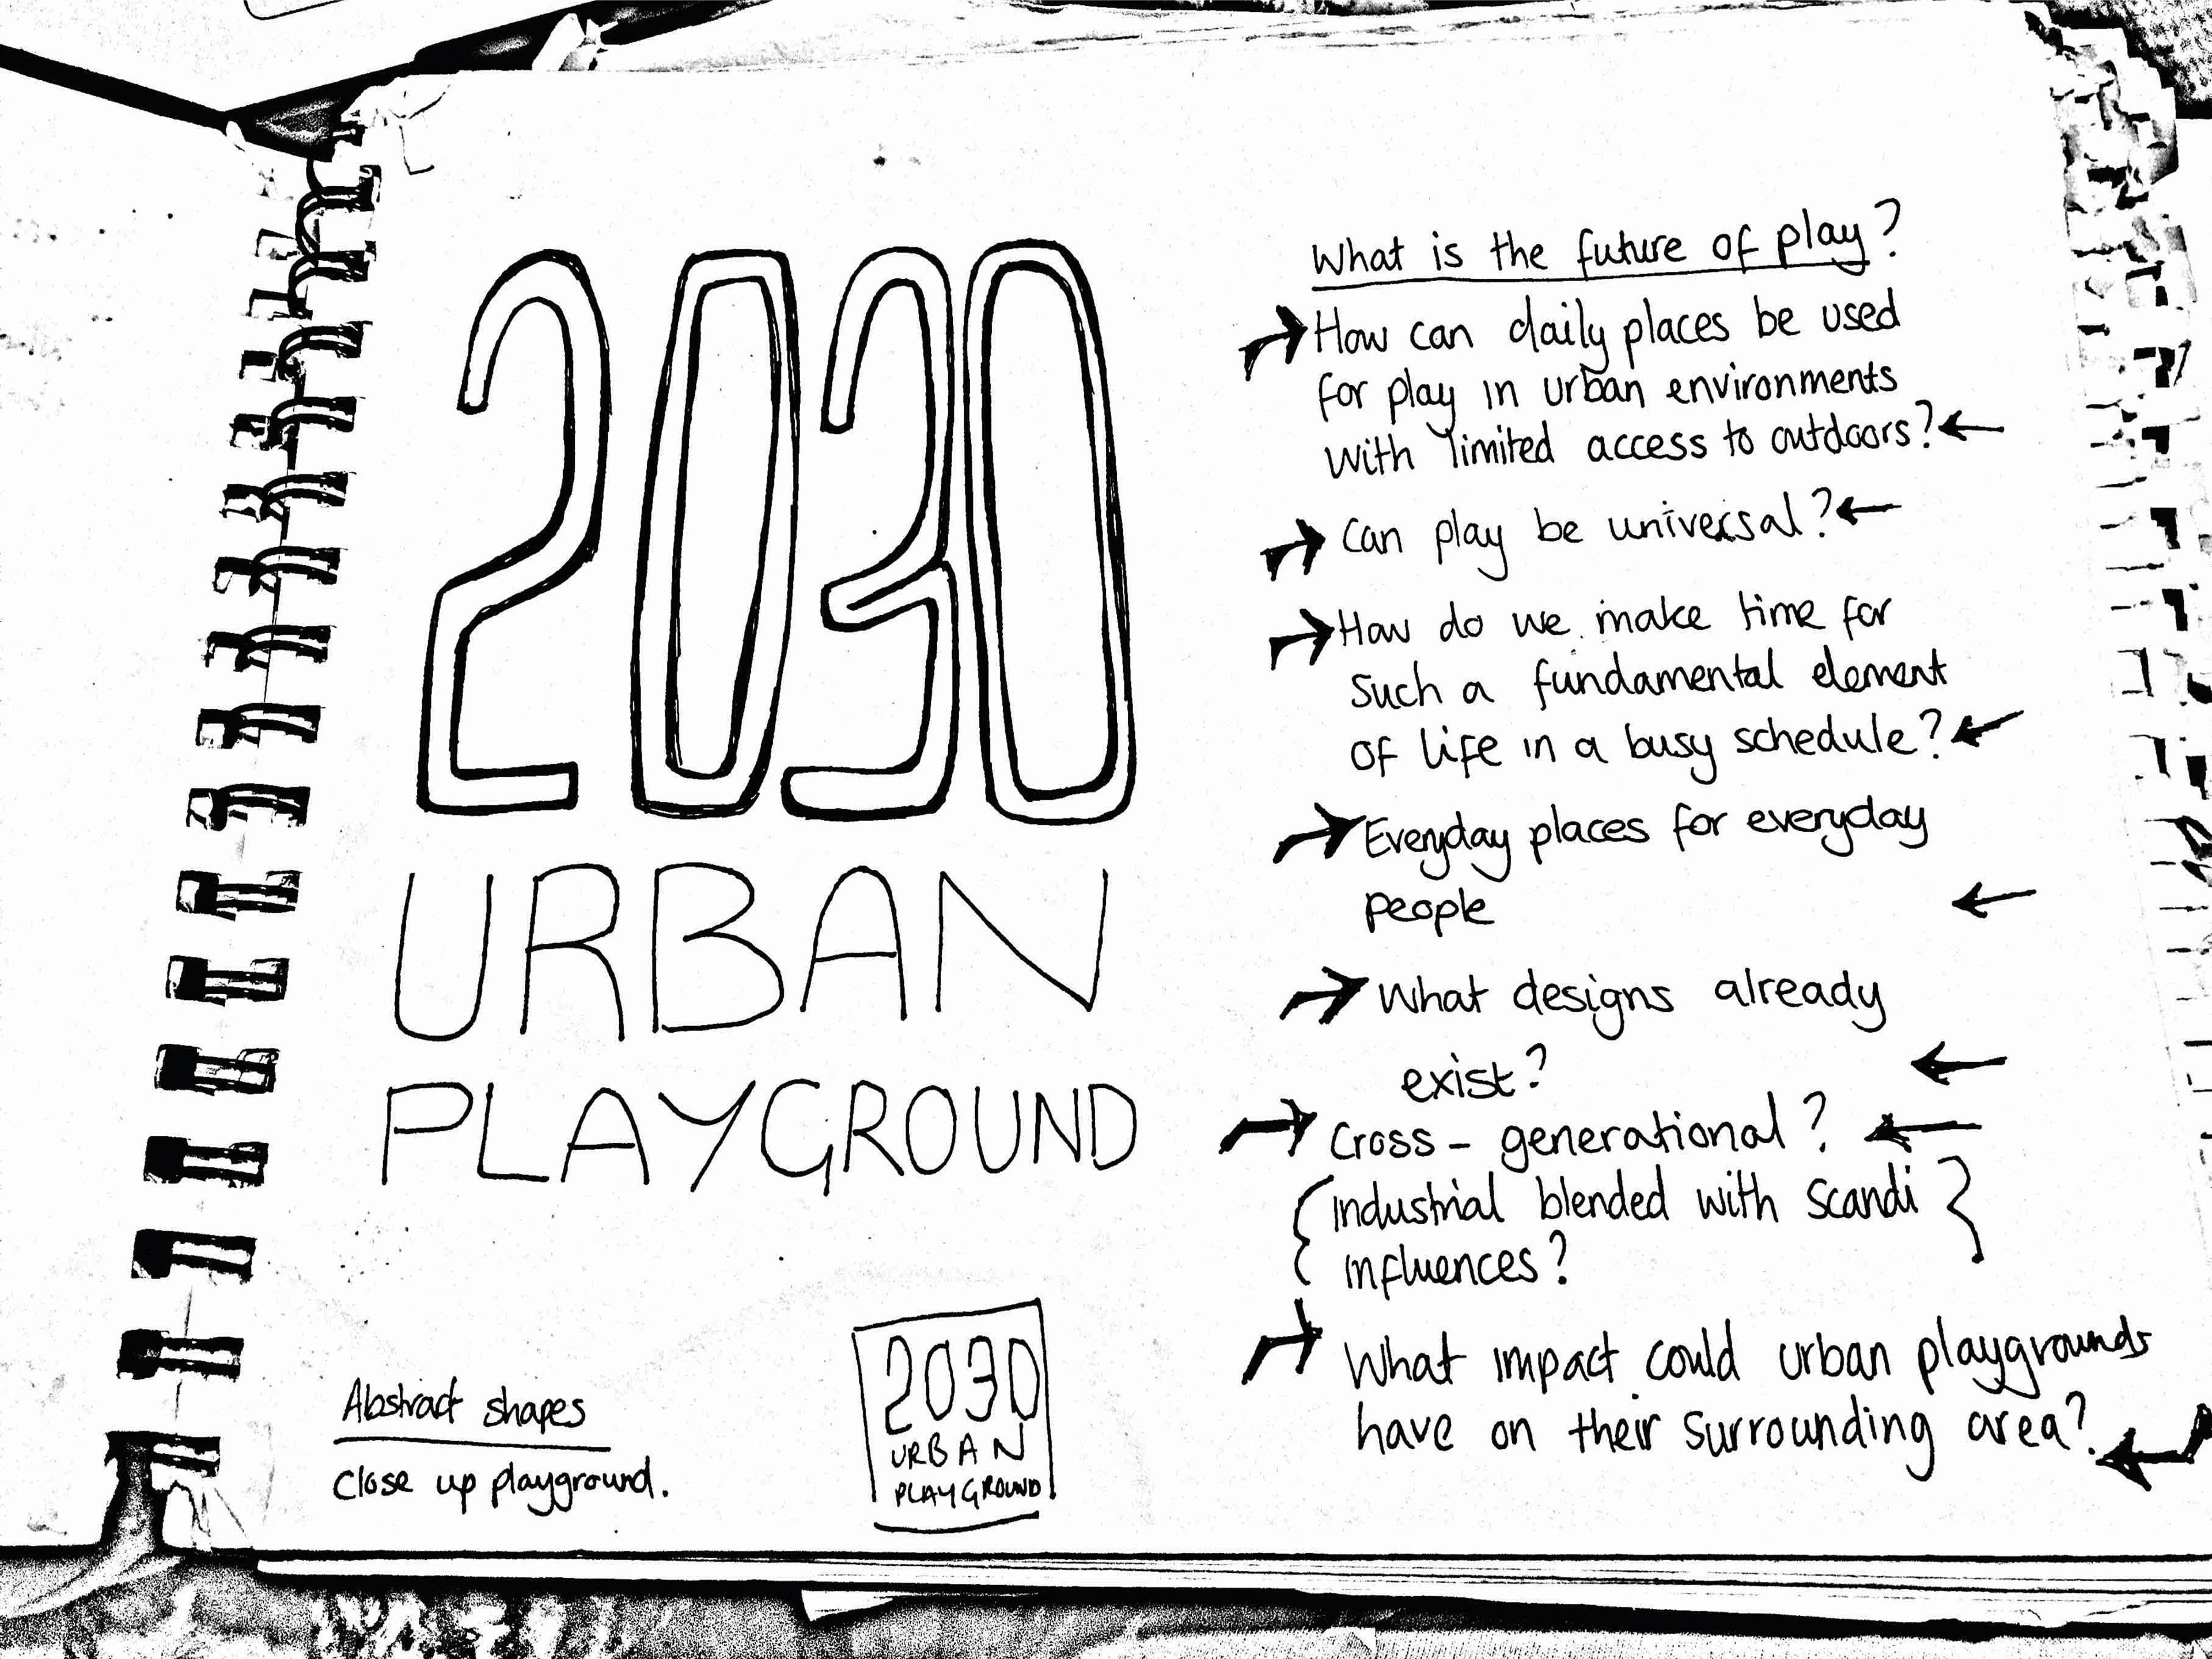 2030
URBAN
PLAYGROUND
Abstract shapes
Close up playground.
2030
URBAN
PLAYGROUND
What is the future of play?
How can daily places be used
for play in urban environments
with limited access to outdoors?
Can play be universal?
How do we make time for
such a fundamental element
of life in a busy schedule?
Everyday places for everyday
people
What designs already
exist?
Cross - generational?
{Industrial blended with Scandi}
influences?
What impact could urban playgrounds
have on their surrounding area?